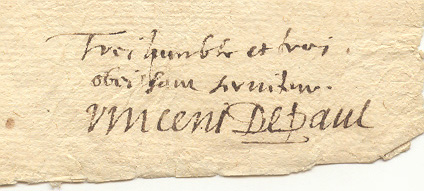 Tres humble et tres
obeissant seruiteur
Vincent Depaul